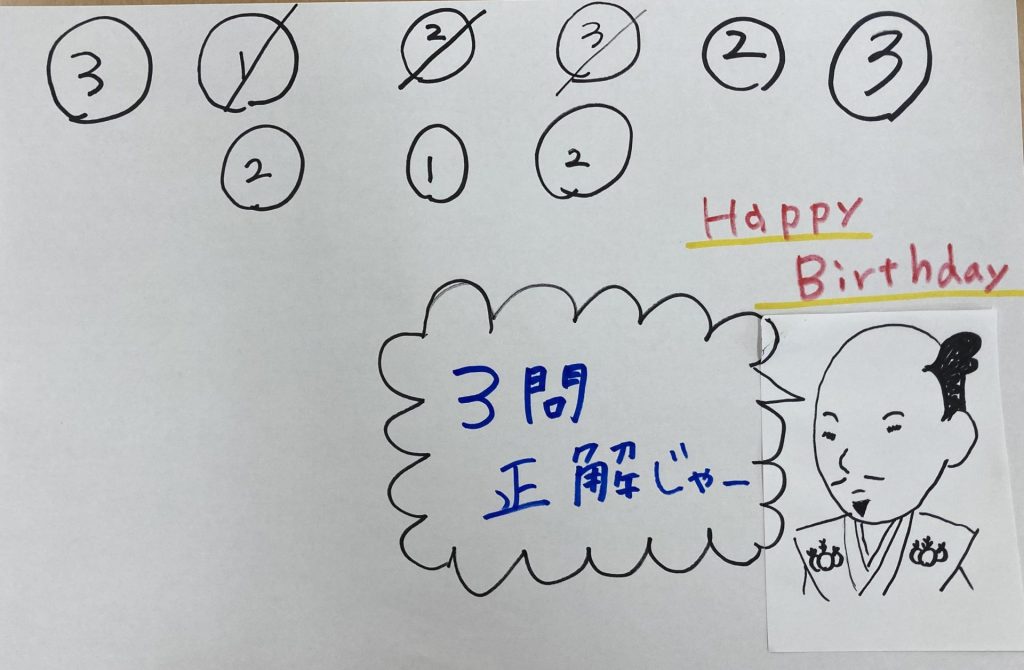 3 1 2 3 2 3
2 1 2
Happy
Birthday
3問
正解じゃー